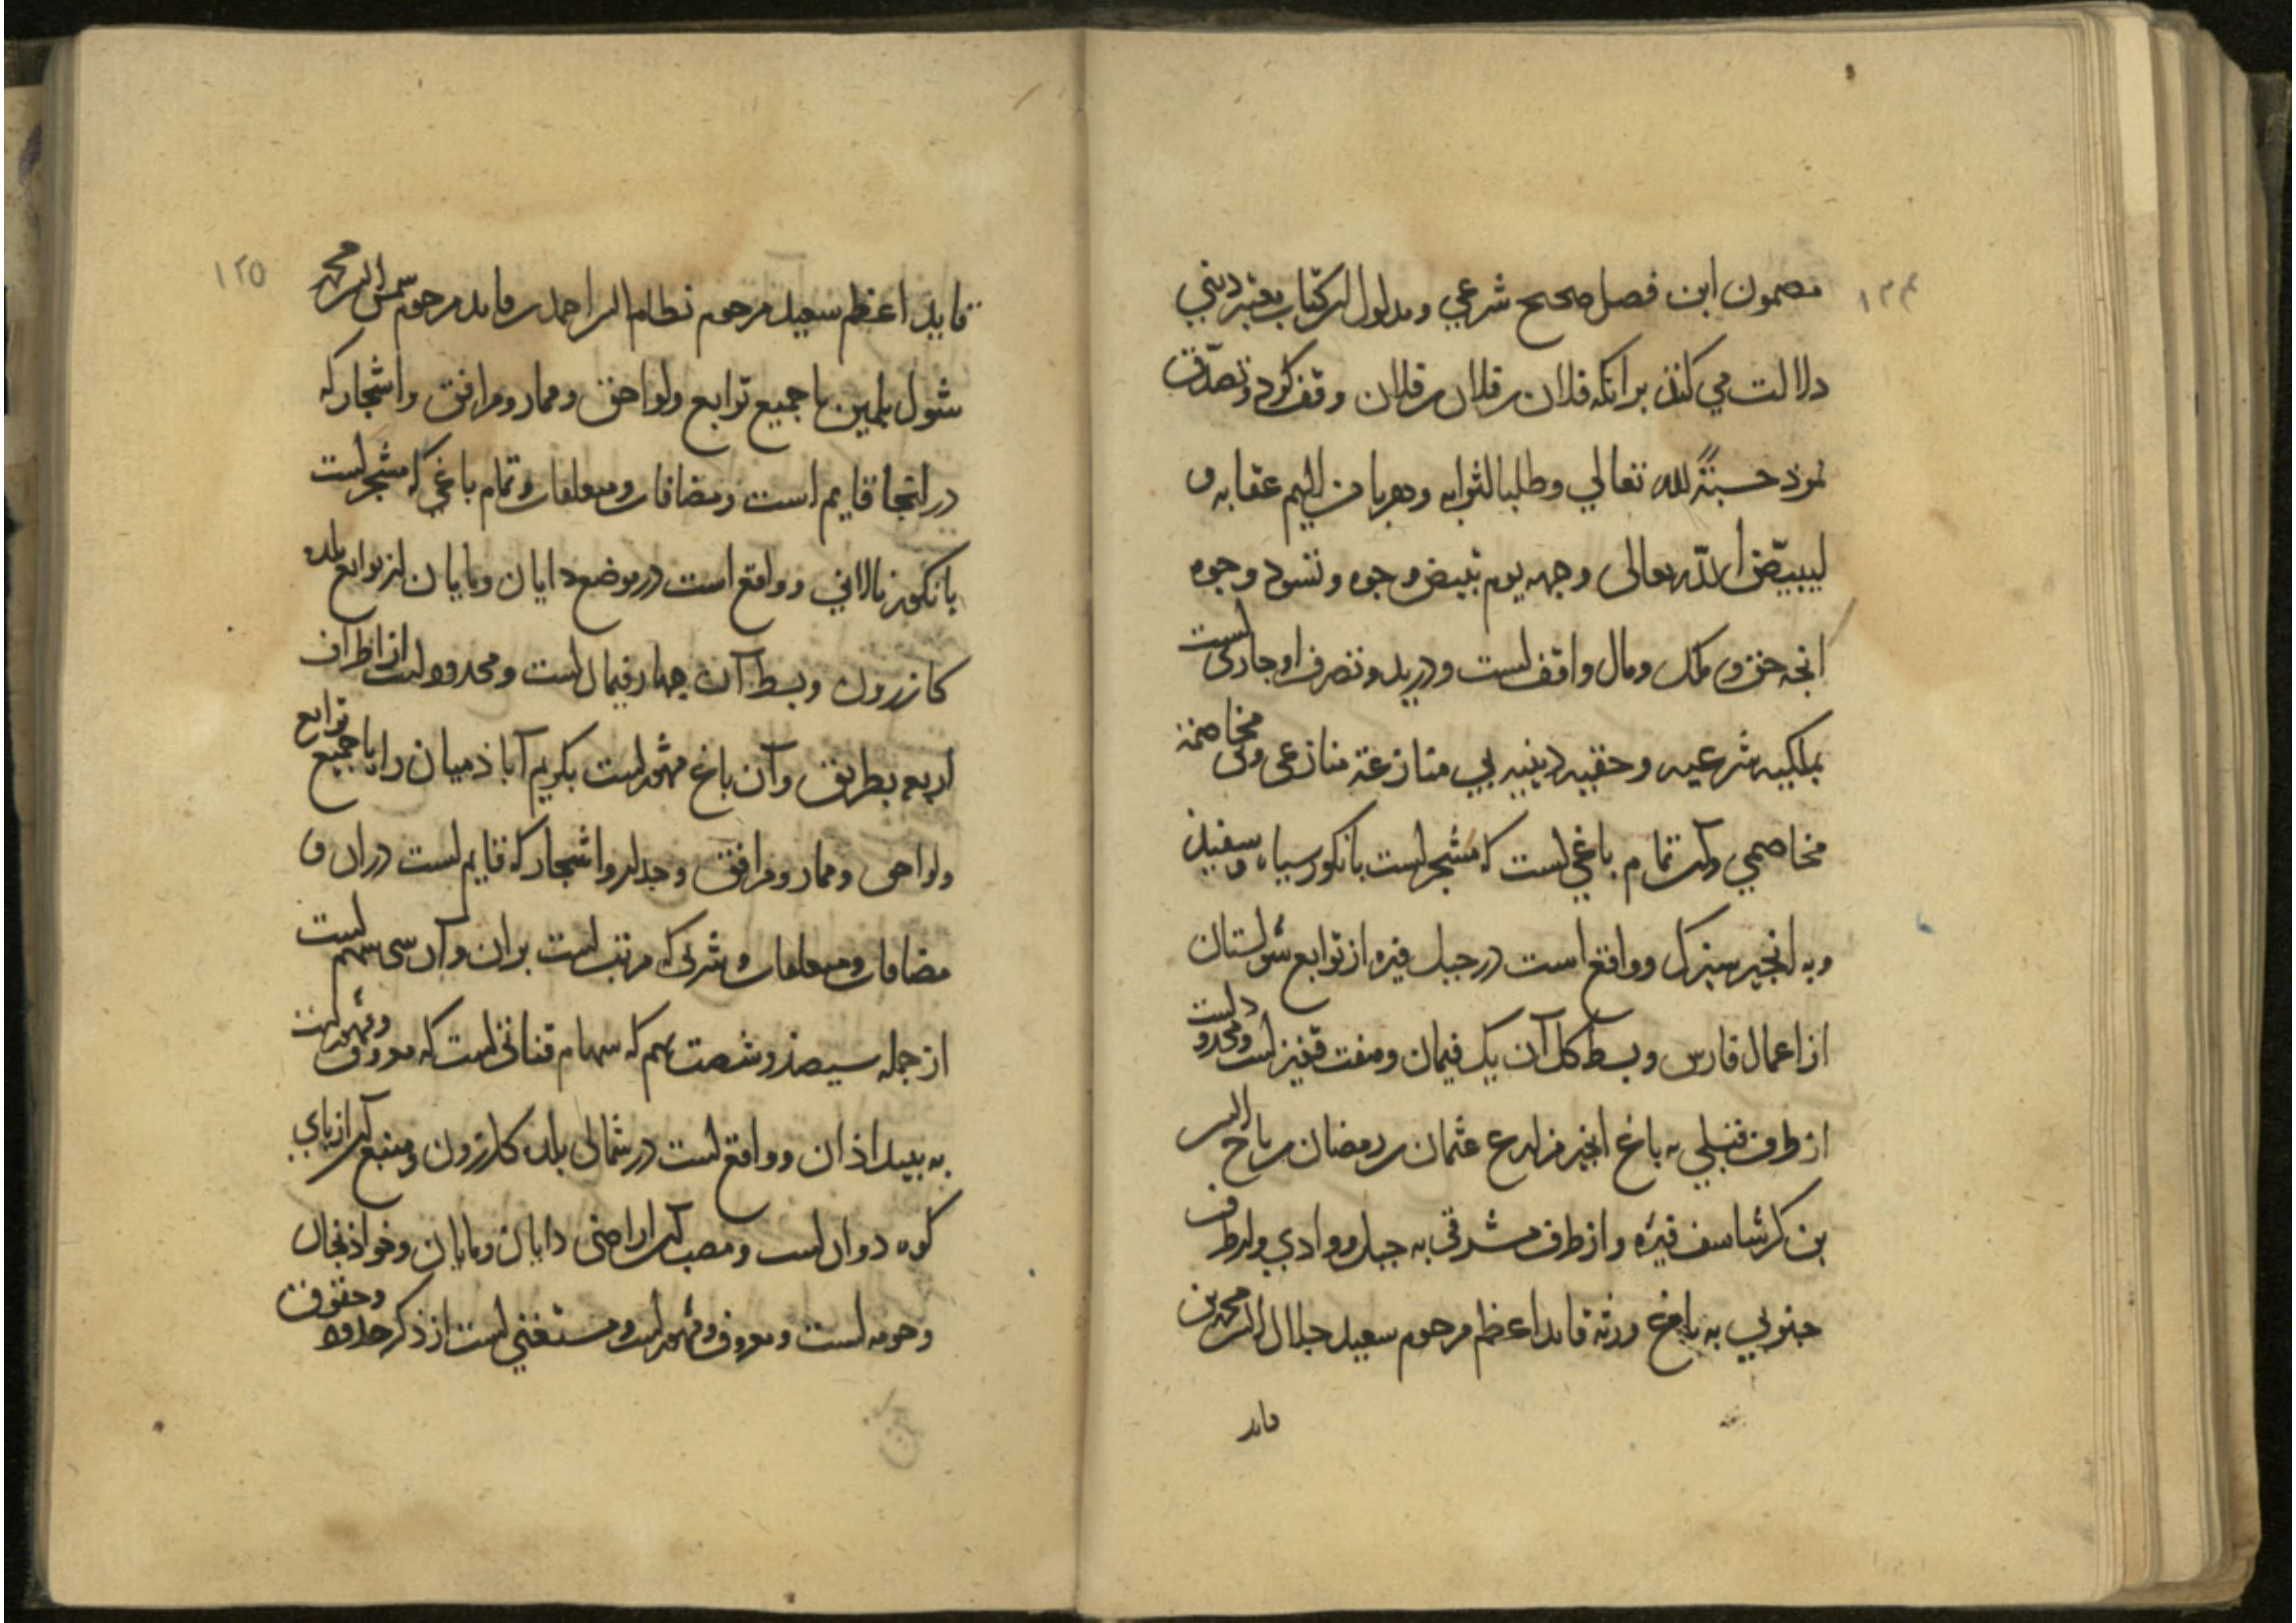 ۱۲۴
مضمون این فصل صحیح شرعی و مدلول این کتاب معتبر دینی
دلالت می کند برانکه فلان بن فلان بن فلان وقف کرد و تصدّق
نموذ حسبةً لله تعالی وطلبا لثوابه وهربا من الیم عقابه و
لیبیّض الله تعالی وجهه یوم تبیض وجوه وتسود وجوه
انچه حق و ملک و مال واقف است و در ید و تصرف او جاری است
بملکیه شرعیه و حقیه دینیه بی منازعة منازعی و بی مخاصمة
مخاصمی وآن تمام باغی است که مشجر است بانکور سیاه و سفید
و به انجیر سبزک و واقع است در جبل فیره از توابع شولستان
از اعمال فارس و بسط کل آن یک فیمان و هفت قفیز است و محدود است
از طرف قبلی به باغ انجیر عثمان بن رمضان بن
بن کرشاسف فیره و از طرف مشرقی به جبل و وادی و از طرف
جنوبی به باغ ورثه قاید اعظم مرحوم سعید جلال الدین محمد بن
قاید
۱۲۵
قاید اعظم سعید مرحوم نظام الدین احمد بن قاید مرحوم شمس الدین محمد
شول با جمیع توابع ولواحق وممار ومرافق واشجار که
در انجا قایم است و مضافات و متعلقات و تمام باغی که مشجر است
بانکور و واقع است در موضع دایان و بایان از توابع بلده
کازرون و بسط آن چهار فیمان است و محدود است از اطراف
اربع بطریق وآن باغ مشهور است بکریم آباذ میان را با جمیع توابع
ولواحق وممار ومرافق وجدار واشجار که قایم است دران و
مضافات ومتعلقات و شربی که مرتب است بران و آن سی سهم است
از جمله سیصذ و شصت سهم که سهام قناتی است که معروف و مشهور است
به بیداذان و واقع است در شمالی بلده کازرون و منبع آن از پای
کوه دوان است و مصب آن اراضی دایان و بایان و خواذنجان
و حومه است و معروف و مشهور است و مستغنی است از ذکر حدود وحقوق